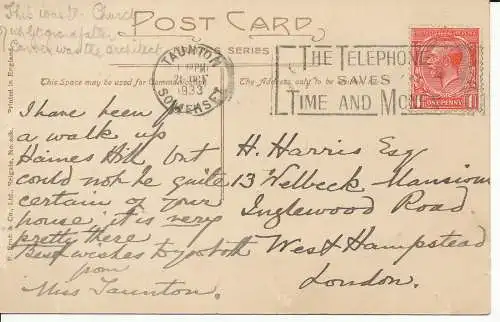 This was St. Church
Post Card
SERIES
architect
TAUNTON
21 OCT
1933
SOMERSET
THE TELEPHONE
SAVES
TIME AND MONEY
POSTAGE
REVENUE
ONE PENNY
This Space may be used for Communication
The Address only to be
Printed in England
I have been for
a walk up
Haines Hill, but
could not be quite
certain of your
house, it is very
pretty there
Best wishes to you both
from
Miss Taunton.
H. Harris Esq
13 Welbeck Mansions
Inglewood Road
West Hampstead
London.